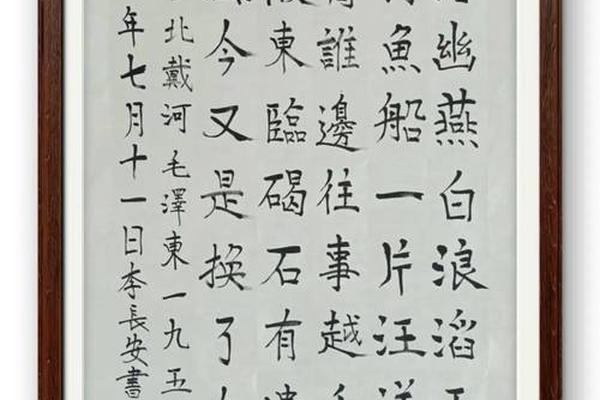 幽燕白浪滔
魚船一片汪洋
誰邊往事越
東臨碣石有
今又是換了
北戴河毛澤東一九五
年七月十一日李長安書